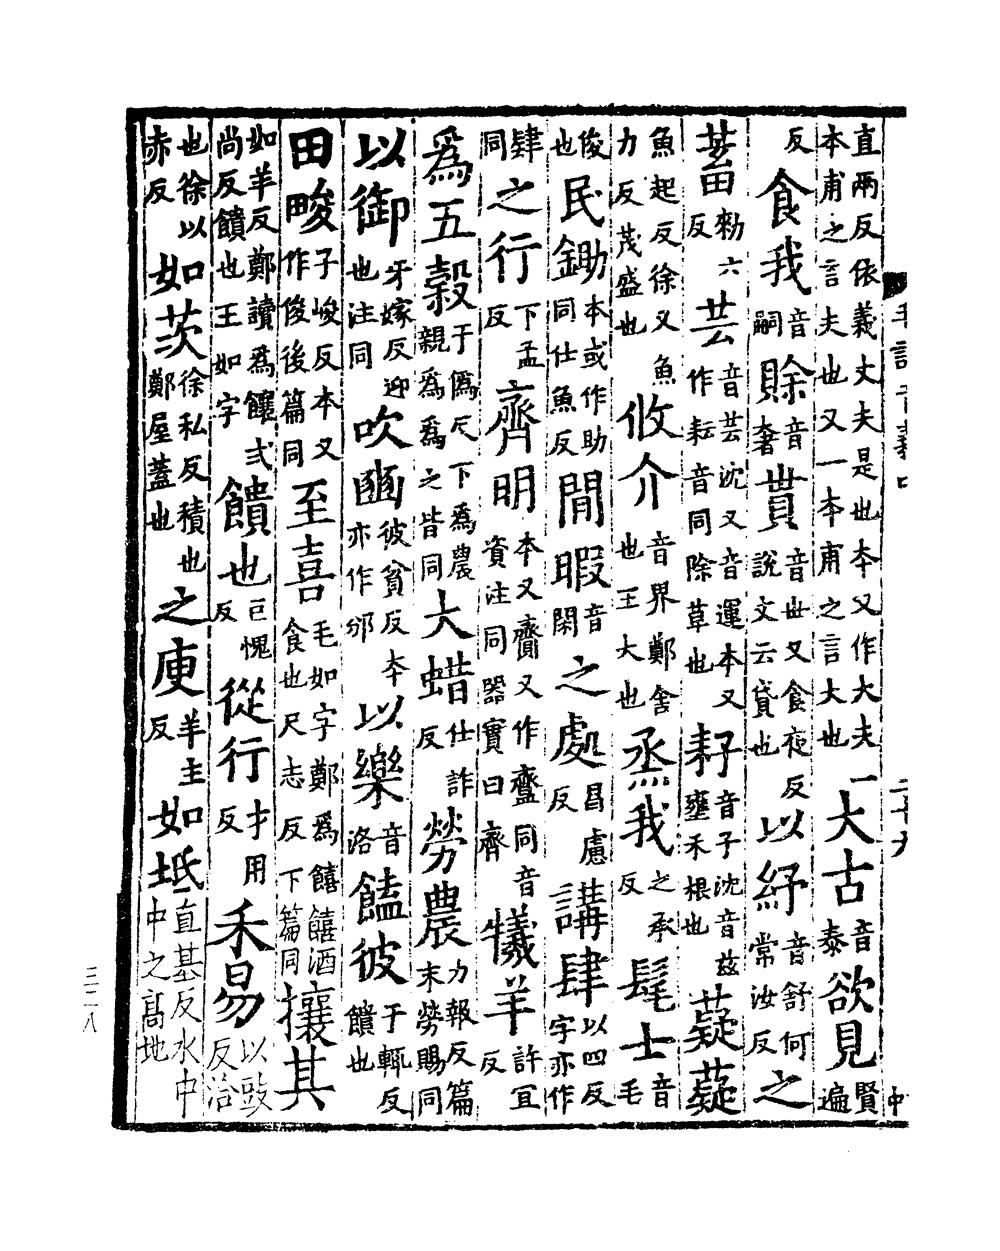 直兩反依義丈夫是也本又作大夫一本甫之言夫也又一本甫之言大也大古音泰欲見賢遍
反食我音嗣賖音奢貰音世又食夜反說文云貸也以紓音舒何常汝反之
蓄勑六反芸音芸沈又音運本又作耘音同除草也耔音子沈音兹壅禾根也薿薿
魚起反徐又魚力反茂盛也攸介音界鄭舍也王大也烝我之承反髦士音毛
俊也民鋤本或作助同仕魚反閒暇音閑之處昌慮反講肆以四反字亦作
肄同之行下孟反齊明本又齎又作齍同音資注同器實曰齊犧羊許宜反
爲五穀于僞反下爲農親爲爲之皆同大蜡仕詐反勞農力報反篇末勞賜同
以御牙嫁反迎也注同吹豳彼貧反本亦作邠以樂音洛饁彼于輒反饋也
田畯子峻反本又作俊後篇同至喜毛如字鄭爲饎饎酒食也尺志反下篇同攘其
如羊反鄭讀爲饟式尚反饋也王如字饋也巨愧反從行才用反禾易以豉反治
也徐以赤反如茨徐私反積也鄭屋蓋也之庾羊主反如坻直基反水中中之高地
三二八